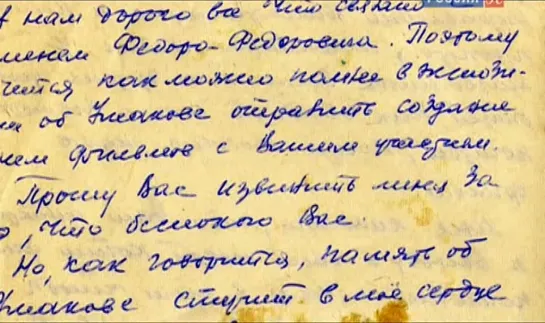 нам дорого все что связано
именем Федора Федоровича. Поэтому
хочется как можно полнее в жизни
об Ушакове отразить создание
фильмов с Вашим участием.
Прошу Вас извинить меня за
, что беспокою Вас.
Но, как говорится, память об
Ушакове стучит в мое сердце
РОССИЯ